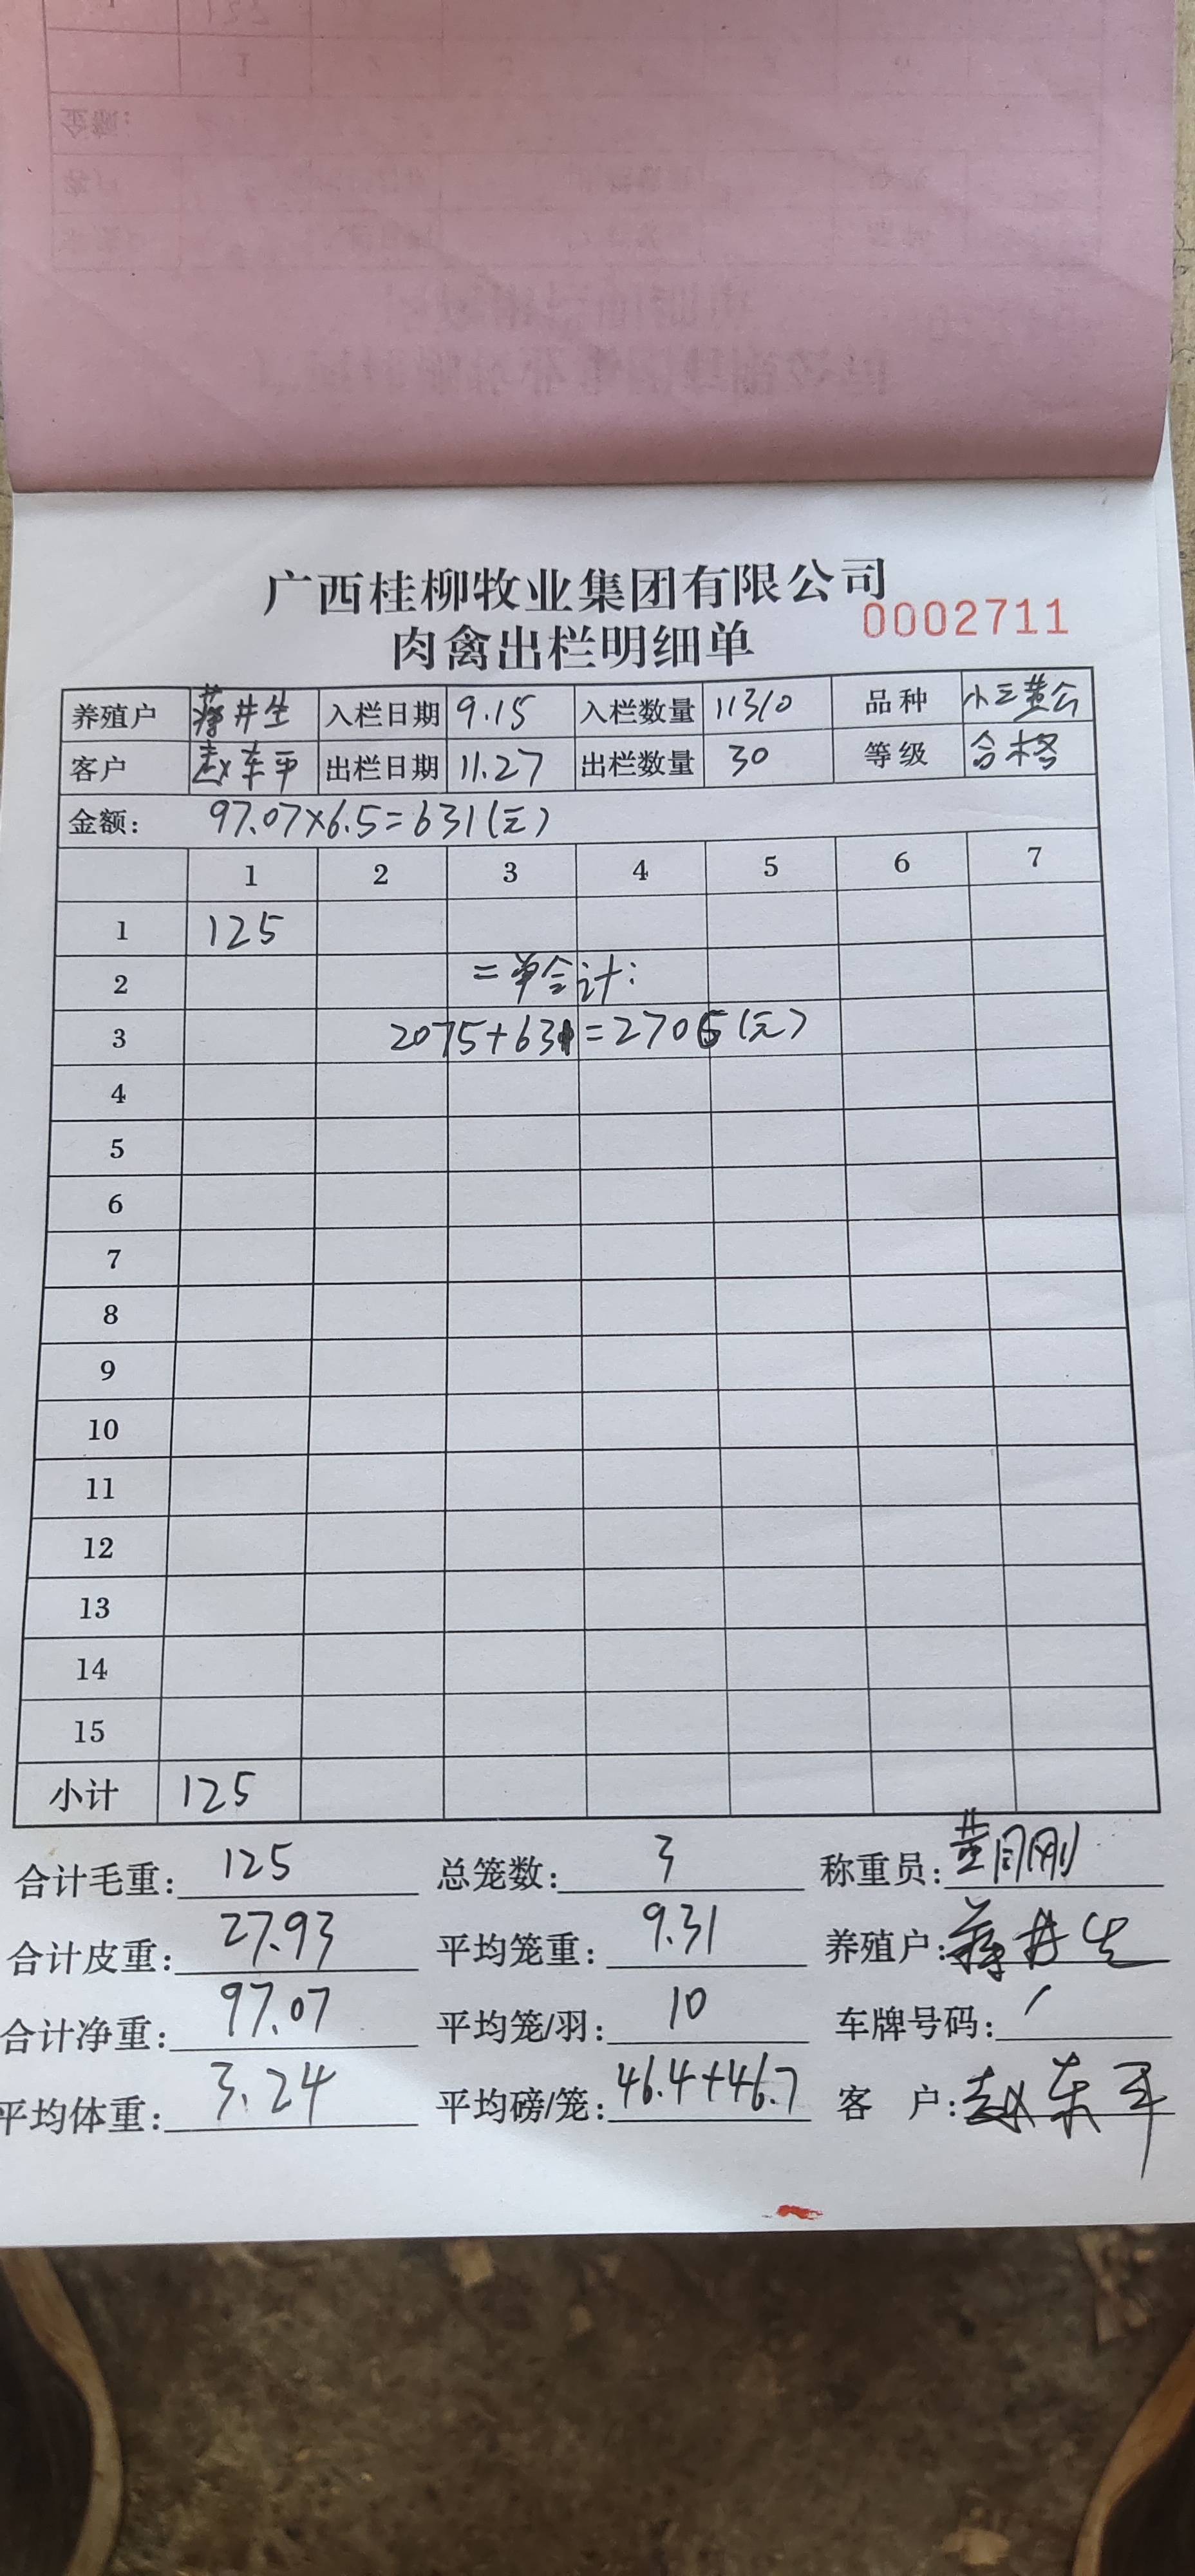 广西桂柳牧业集团有限公司
肉禽出栏明细单 0002711
养殖户 蒋井生 入栏日期 9.15 入栏数量 11310 品种 小三黄公
客户 赵东平 出栏日期 11.27 出栏数量 30 等级 合格
金额: 97.07×6.5=631(元)
1 2 3 4 5 6 7
1 125
2 二单合计:
3 2075+631=2706(元)
4
5
6
7
8
9
10
11
12
13
14
15
小计 125
合计毛重: 125 总笼数: 3 称重员: 黄刚
合计皮重: 27.93 平均笼重: 9.31 养殖户: 蒋井生
合计净重: 97.07 平均笼/羽: 10 车牌号码: /
平均体重: 3.24 平均磅/笼: 46.4+46.7 客户: 赵东平